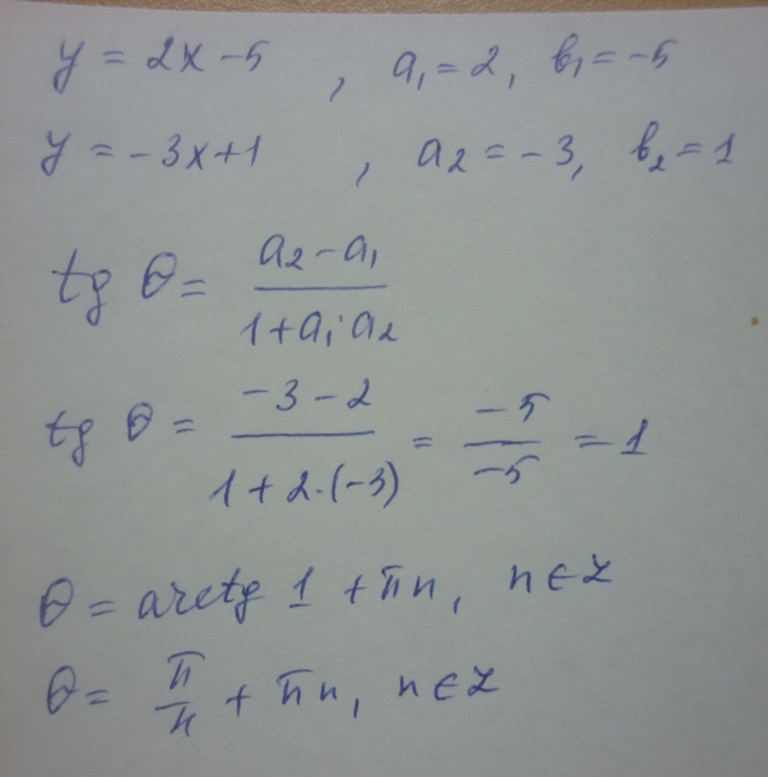 y = 2x - 5 , a₁ = 2, b₁ = -5
y = -3x + 1 , a₂ = -3, b₂ = 1
tg θ = (a₂ - a₁) / (1 + a₁·a₂)
tg θ = (-3 - 2) / (1 + 2·(-3)) = -5 / -5 = 1
θ = arctg 1 + πn, n ∈ Z
θ = π/н + πn, n ∈ Z